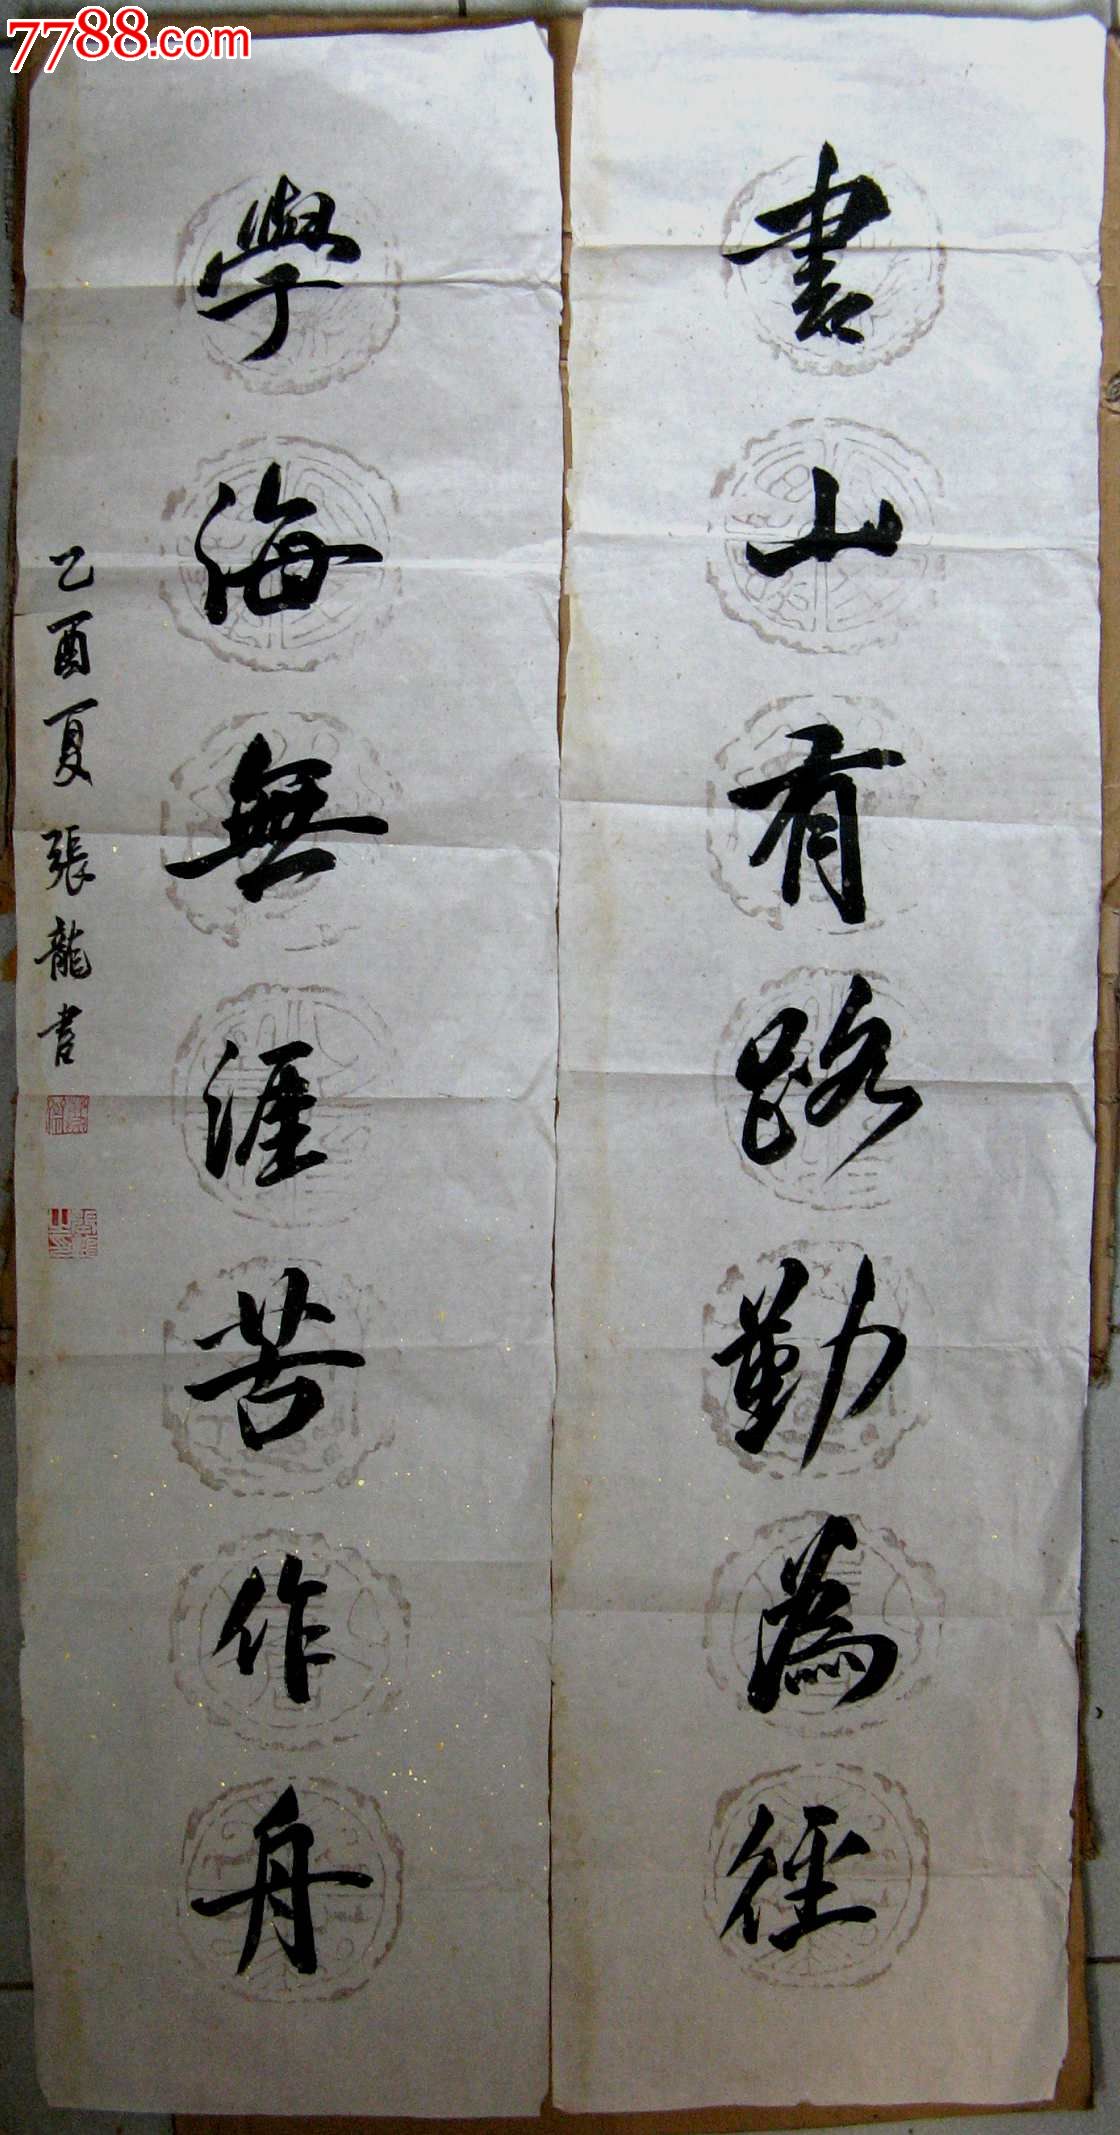 7788.com
書山有路勤為徑
學海無涯苦作舟
乙酉夏 張龍書